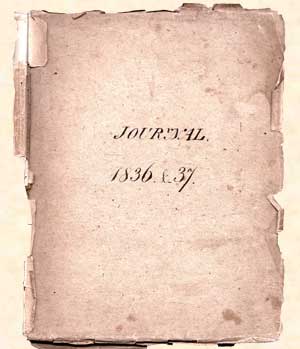 JOURNAL.
1836. & 37.